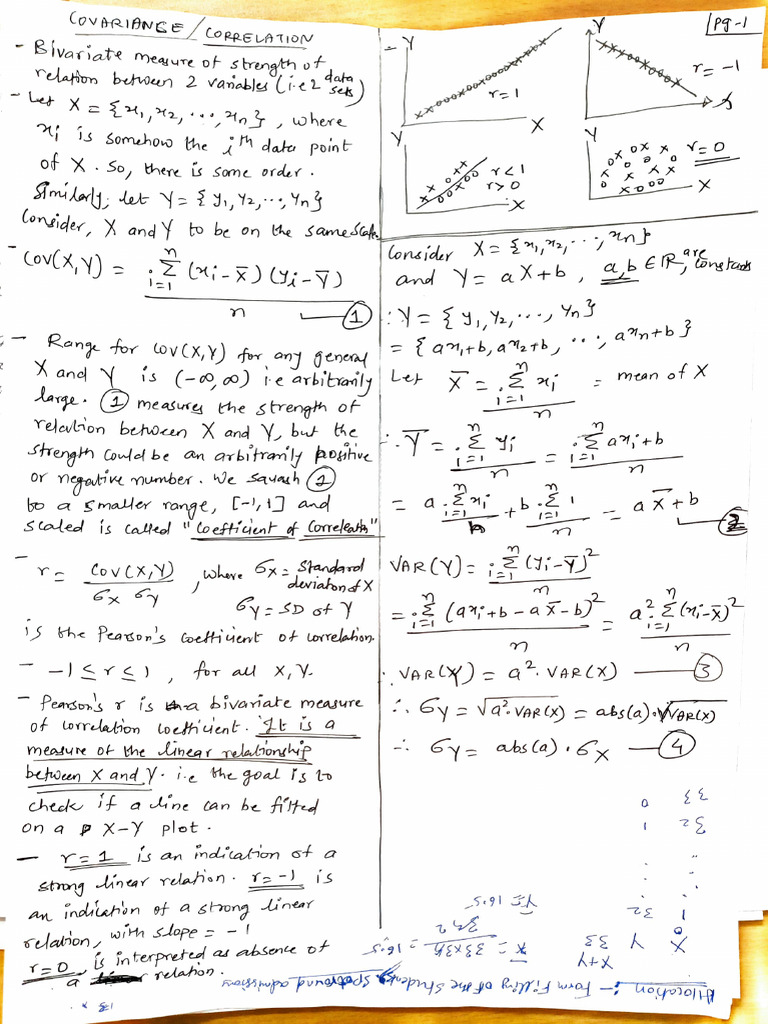 COVARIANCE / CORRELATION
- Bivariate measure of strength of
relation between 2 variables (i.e 2 data
sets)
- Let X = {x1, x2, ..., xn}, where
xi is somehow the ith data point
of X. So, there is some order.
Similarly, let Y = {y1, y2, ..., yn}
Consider, X and Y to be on the same scale
- COV(X,Y) = n∑i=1 (xi - X̄)(yi - Ȳ)
n
①
- Range for COV(X,Y) for any general
X and Y is (-∞, ∞) i.e arbitrarily
large. ① measures the strength of
relation between X and Y, but the
strength could be an arbitrarily positive
or negative number. We squash ①
to a smaller range, [-1,1] and
scaled is called "Coefficient of Correlation"
- r = COV(X,Y) , where σX = Standard
σX σY
deviation of X
σY = SD of Y
is the Pearson's coefficient of correlation.
- -1 ≤ r ≤ 1, for all X, Y.
- Pearson's r is a bivariate measure
of correlation coefficient. It is a
measure of the linear relationship
between X and Y. i.e the goal is to
check if a line can be fitted
on a X-Y plot.
- r = 1 is an indication of a
strong linear relation. r = -1 is
an indication of a strong linear
relation, with slope = -1
r = 0, is interpreted as absence of
a relation.
Pg-1
- Y
r = 1
X
Y
r = -1
X
Y
r < 1
r > 0
X
Y
r = 0
X
Consider X = {x1, x2, ..., xn}
and Y = aX + b, a, b ∈ R, are constants
∴ Y = {y1, y2, ..., yn}
= {ax1+b, ax2+b, ..., axn+b}
Let X̄ = n∑i=1 xi = mean of X
n
∴ Ȳ = n∑i=1 yi = n∑i=1 axi + b
n n
= a n∑i=1 xi + b n∑i=1 1 = a X̄ + b
n n
②
VAR(Y) = n∑i=1 (yi - Ȳ)²
n
= n∑i=1 (axi + b - aX̄ - b)² = a² n∑i=1 (xi - X̄)²
n n
∴ VAR(Y) = a². VAR(X) — ③
∴ σY = √a². VAR(X) = abs(a). √VAR(X)
∴ σY = abs(a). σX — ④
Allocation :- Form Filling of the Students Spotround admissions
X Y X+Y
0 33
1 32
32 1
33 0
X̄ = 33x34 = 16.5
Ȳ = 16.5